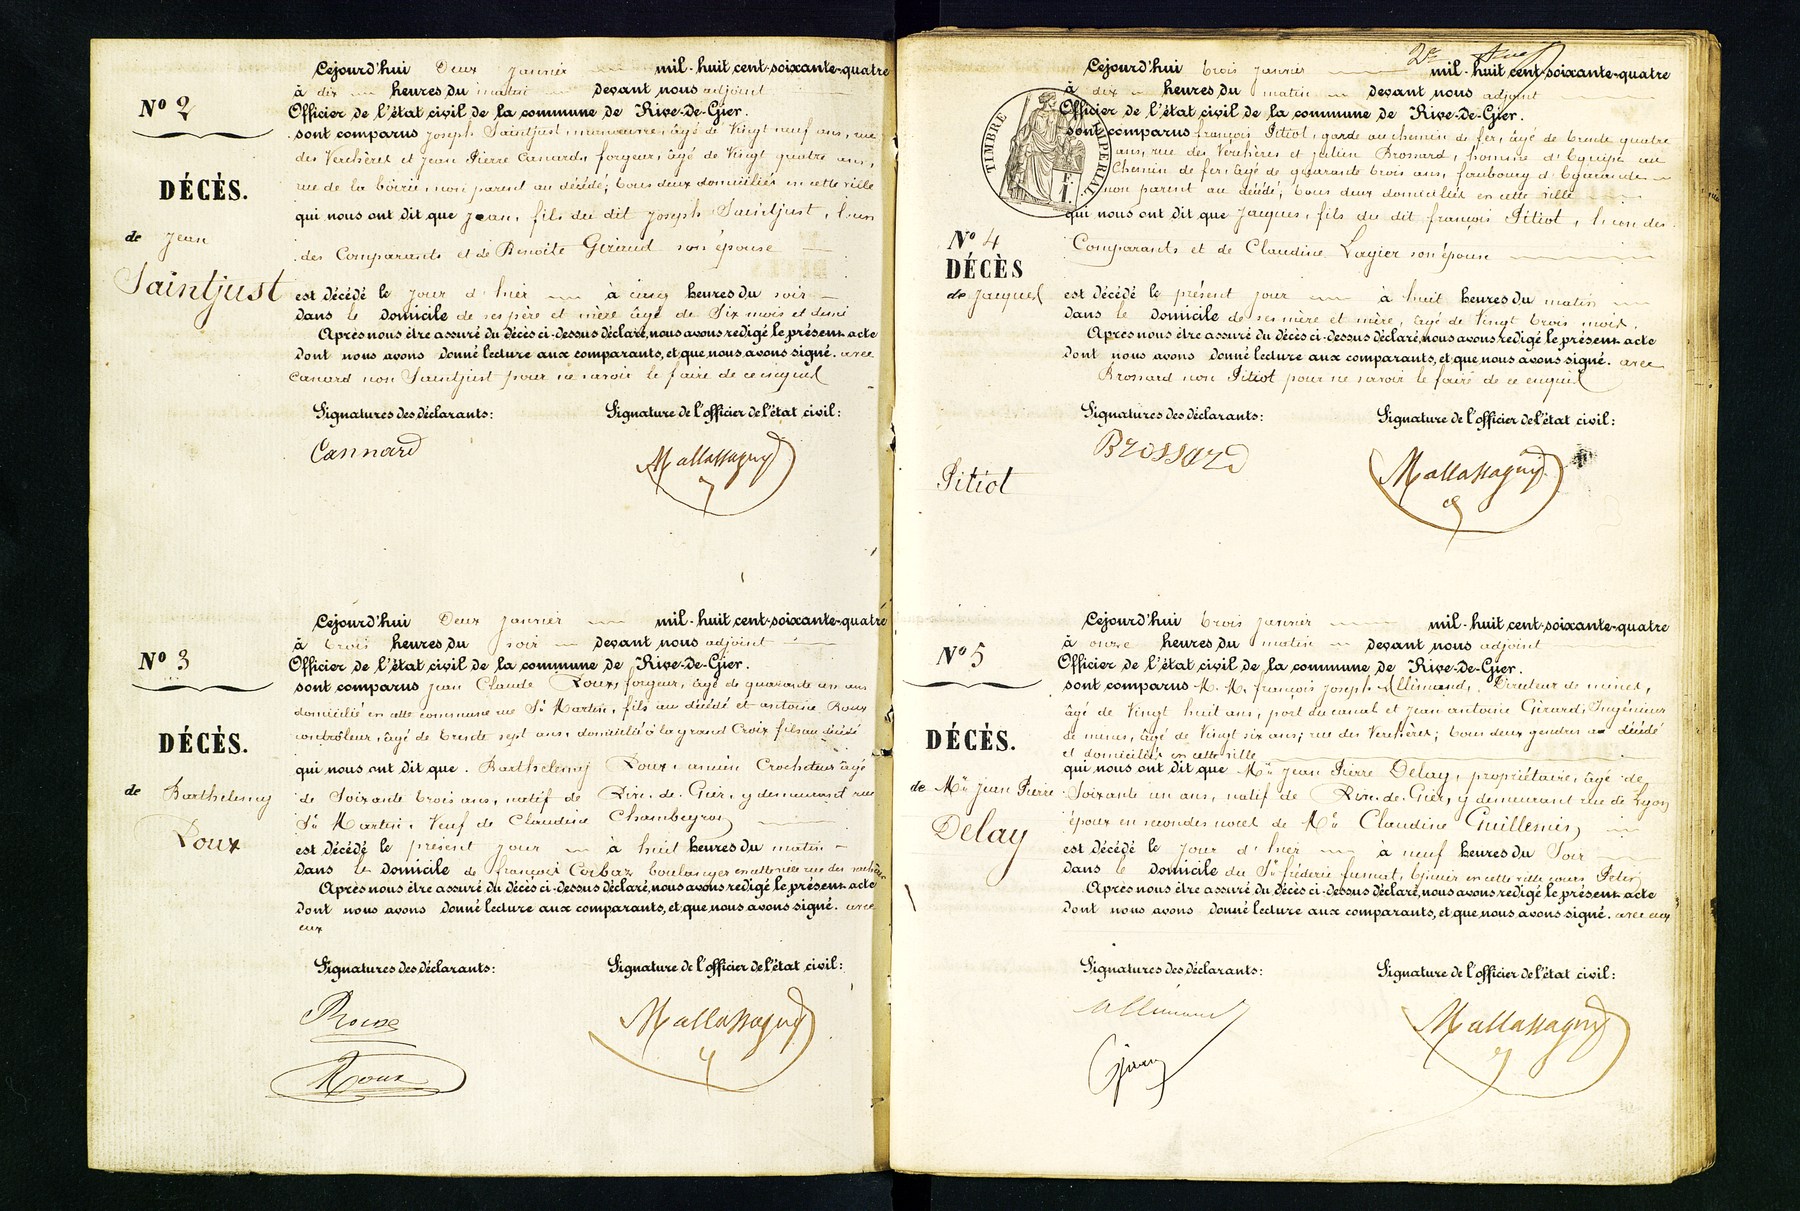 Nº 2
DÉCÈS.
de Jean
Saintjust
Cejourd'hui Deux janvier mil-huit cent-soixante-quatre
à dix heures du matin devant nous adjoint
Officier de l'état civil de la commune de Rive-de-Gier.
sont comparus Joseph Saintjust, manœuvre, âgé de Vingt neuf ans, rue
des Verchères et Jean Pierre Canard, forgeur, âgé de Vingt quatre ans,
rue de la boirie, non parent au décédé; tous deux domiciliés en cette ville
qui nous ont dit que Jean, fils du dit Joseph Saintjust, l'un
des Comparants et de Benoite Giraud son épouse
est décédé le jour d'hier à cinq heures du soir
dans le domicile de ses père et mère âgé de Six mois et demi
Après nous être assuré du décès ci-dessus déclaré, nous avons redigé le présent acte
dont nous avons donné lecture aux comparants, et que nous avons signé. avec
Canard non Saintjust pour ne savoir le faire de ce enquis
Signatures des déclarants:
Signature de l'officier de l'état civil:
Cannard
Mallassagny
Nº 3
DÉCÈS.
de Barthelemy
Roux
Cejourd'hui Deux janvier mil-huit cent-soixante-quatre
à trois heures du soir devant nous adjoint
Officier de l'état civil de la commune de Rive-de-Gier.
sont comparus Jean Claude Roux, forgeur, âgé de quarante un ans
domicilié en cette commune rue St Martin, fils au décédé et antoine Roux
contrôleur, âgé de trente sept ans, domicilié à la grand Croix fils au décédé
qui nous ont dit que Barthelemy Roux, ancien Crocheteur âgé
de Soixante trois ans, natif de Rive-de-Gier, y demeurant rue
St Martin, Veuf de Claudine Chambeyron
est décédé le présent jour à huit heures du matin
dans le domicile de françois Corbaz boulanger en cette ville rue des
Après nous être assuré du décès ci-dessus déclaré, nous avons redigé le présent acte
dont nous avons donné lecture aux comparants, et que nous avons signé. avec
eux
Signatures des déclarants:
Signature de l'officier de l'état civil:
Roux
Roux
Mallassagny
TIMBRE IMPÉRIAL
Nº 4
DÉCÈS
de Jacques
Pitiot
Cejourd'hui trois janvier mil-huit cent-soixante-quatre
à dix heures du matin devant nous adjoint
Officier de l'état civil de la commune de Rive-de-Gier.
sont comparus françois Pitiot, garde au chemin de fer, âgé de trente quatre
ans, rue des Verchères et julien Brossard, homme d'Equipe au
Chemin de fer, âgé de quarante trois ans, faubourg d'Egarande
non parent au décédé, tous deux domiciliés en cette ville
qui nous ont dit que Jacques, fils du dit françois Pitiot, l'un des
Comparants et de Claudine Lagier son épouse
est décédé le présent jour à huit heures du matin
dans le domicile de ses mère et mère, âgé de Vingt trois mois.
Après nous être assuré du décès ci-dessus déclaré, nous avons redigé le présent acte
dont nous avons donné lecture aux comparants, et que nous avons signé. avec
Brossard non Pitiot pour ne savoir le faire de ce enquis
Signatures des déclarants:
Signature de l'officier de l'état civil:
Brossard
Mallassagny
Nº 5
DÉCÈS.
de Mr Jean Pierre
Delay
Cejourd'hui trois janvier mil-huit cent-soixante-quatre
à onze heures du matin devant nous adjoint
Officier de l'état civil de la commune de Rive-de-Gier.
sont comparus M. M. françois joseph Allimand, Directeur de mines,
âgé de Vingt huit ans, port du canal et Jean antoine Girard, Ingénieur
de mines, âgé de Vingt six ans; rue des Verchères; tous deux gendres au décédé
et domiciliés en cette ville
qui nous ont dit que Mr Jean Pierre Delay, propriétaire, âgé de
Soixante un ans, natif de Rive-de-Gier, y demeurant rue de Lyon
époux en secondes noces de Me Claudine Guillemin
est décédé le jour d'hier à neuf heures du Soir
dans le domicile du Sr fréderic Epicier en cette ville cours
Après nous être assuré du décès ci-dessus déclaré, nous avons redigé le présent acte
dont nous avons donné lecture aux comparants, et que nous avons signé. avec eux
Signatures des déclarants:
Signature de l'officier de l'état civil:
Allimand
Mallassagny